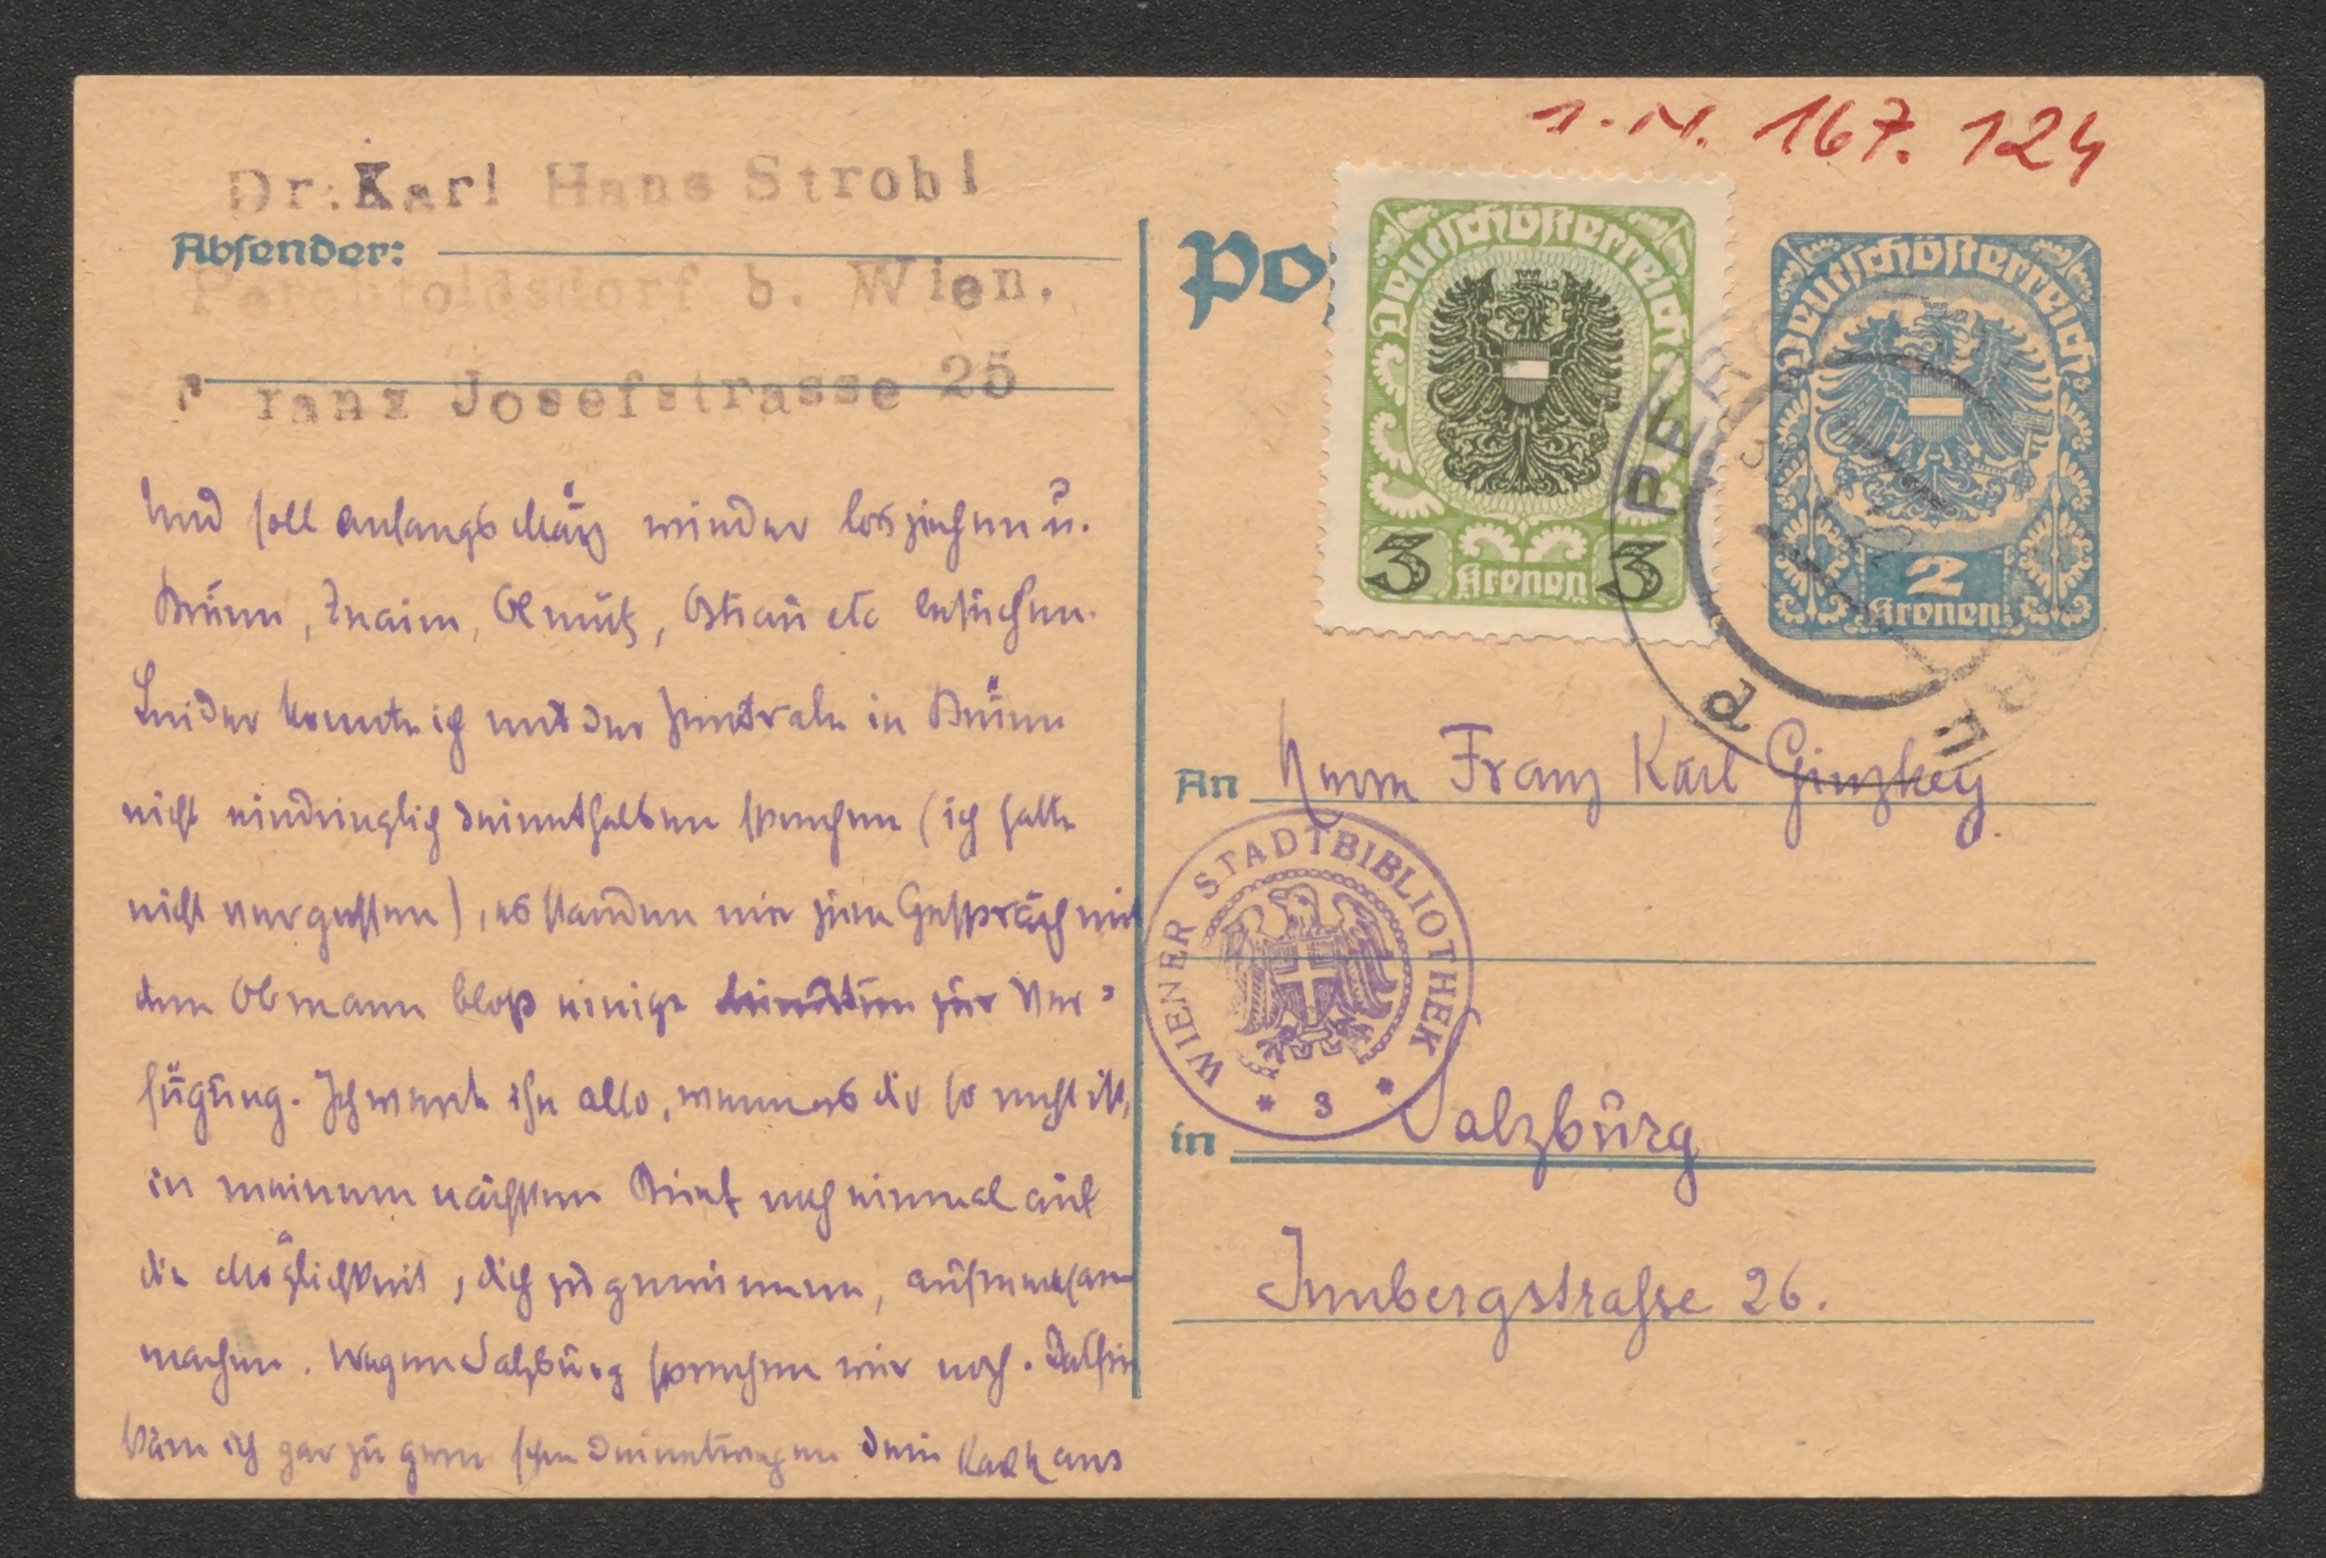 1. N. 167. 124
Dr. Karl Hans Strobl
Absender:
Perchtoldsdorf b. Wien.
Franz Josefstrasse 25
Und soll anfangs März wieder losziehen u.
Brünn, Znaim, Olmütz, Ostrau etc besuchen.
Leider konnte ich mit der Zentrale in Brünn
nicht eindringlich deinethalben sprechen (ich hatte
nicht vergessen), es standen mir zum Gespräch mit
dem Obmann bloß einige Minuten zur Ver-
fügung. Ich werde ihn also, wenn es dir so recht ist,
in meinem nächsten Brief noch einmal auf
die Möglichkeit, dich zu gewinnen, aufmerksam
machen. Wegen Salzburg sprechen wir noch. Dorthin
käm ich gar zu gern schon deinetwegen. Dein Karl Hans
Po
Deutschösterreich
3 Kronen 3
Deutschösterreich
2
Kronen
An Herrn Franz Karl Ginzkey.
WIENER STADTBIBLIOTHEK
* 3 *
in Salzburg
Imbergstrasse 26.